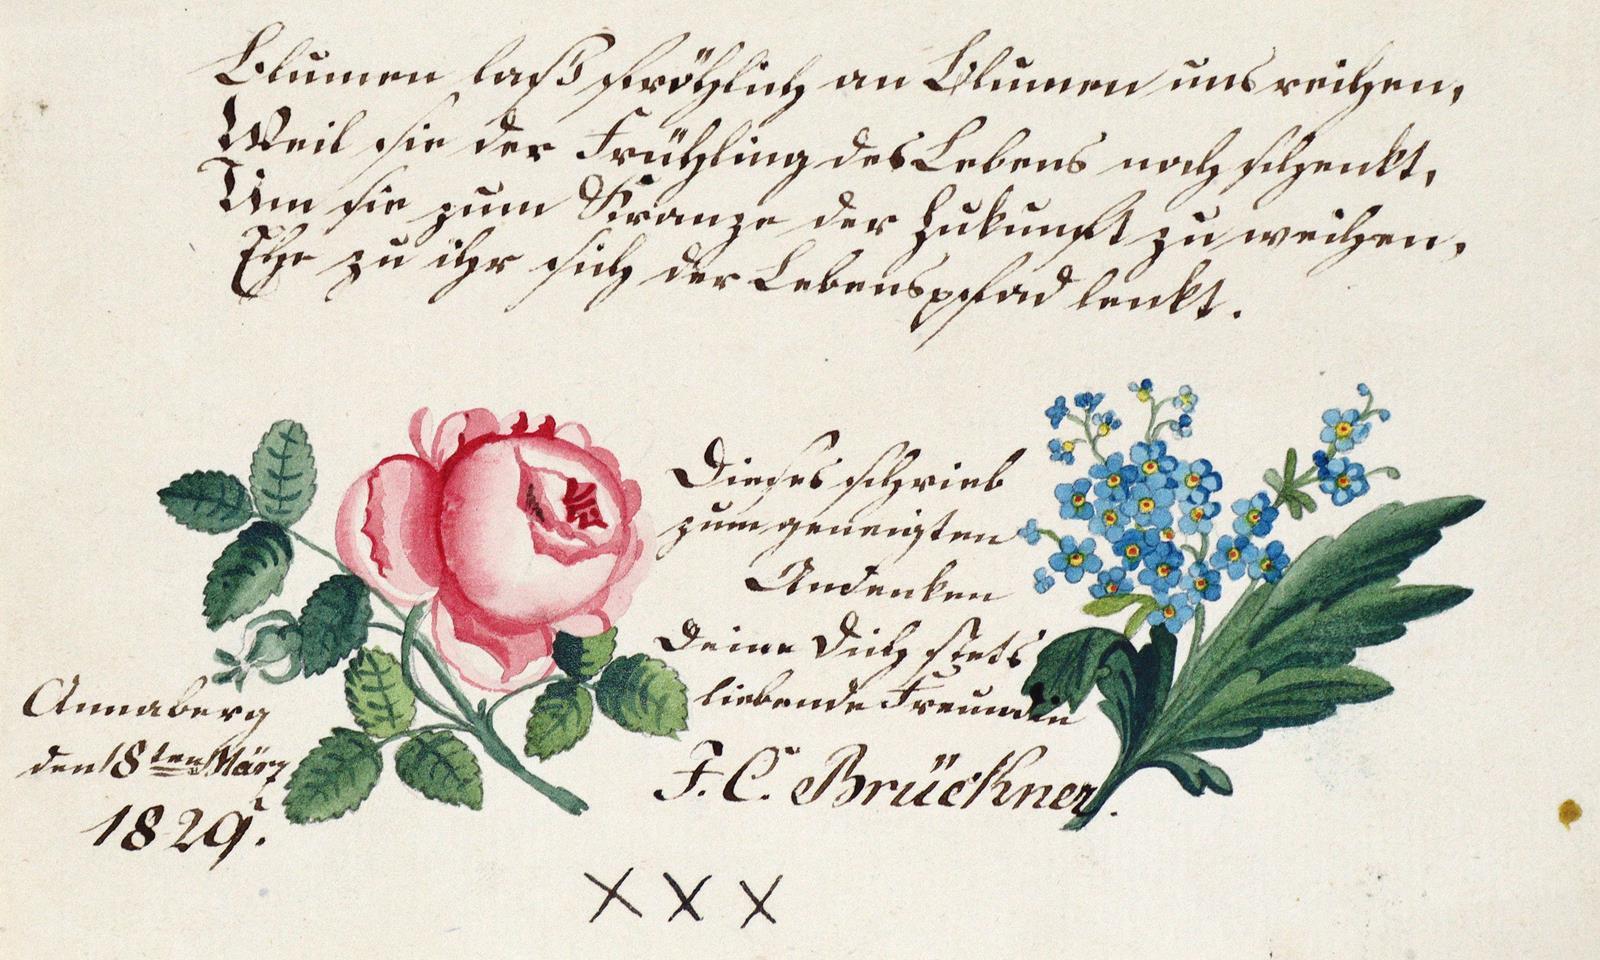 Blumen laß fröhlich an Blumen uns reihen,
Weil sie der Frühling des Lebens noch schenkt,
Um sie zum Kranze der Zukunft zu weihen,
Ehe zu ihr sich der Lebenspfad lenkt.
Dieses schrieb
zum geneigten
Andenken
Deine Dich stets
liebende Freundin
F. C. Brückner.
Annaberg
den 18ten März
1829.
XXX